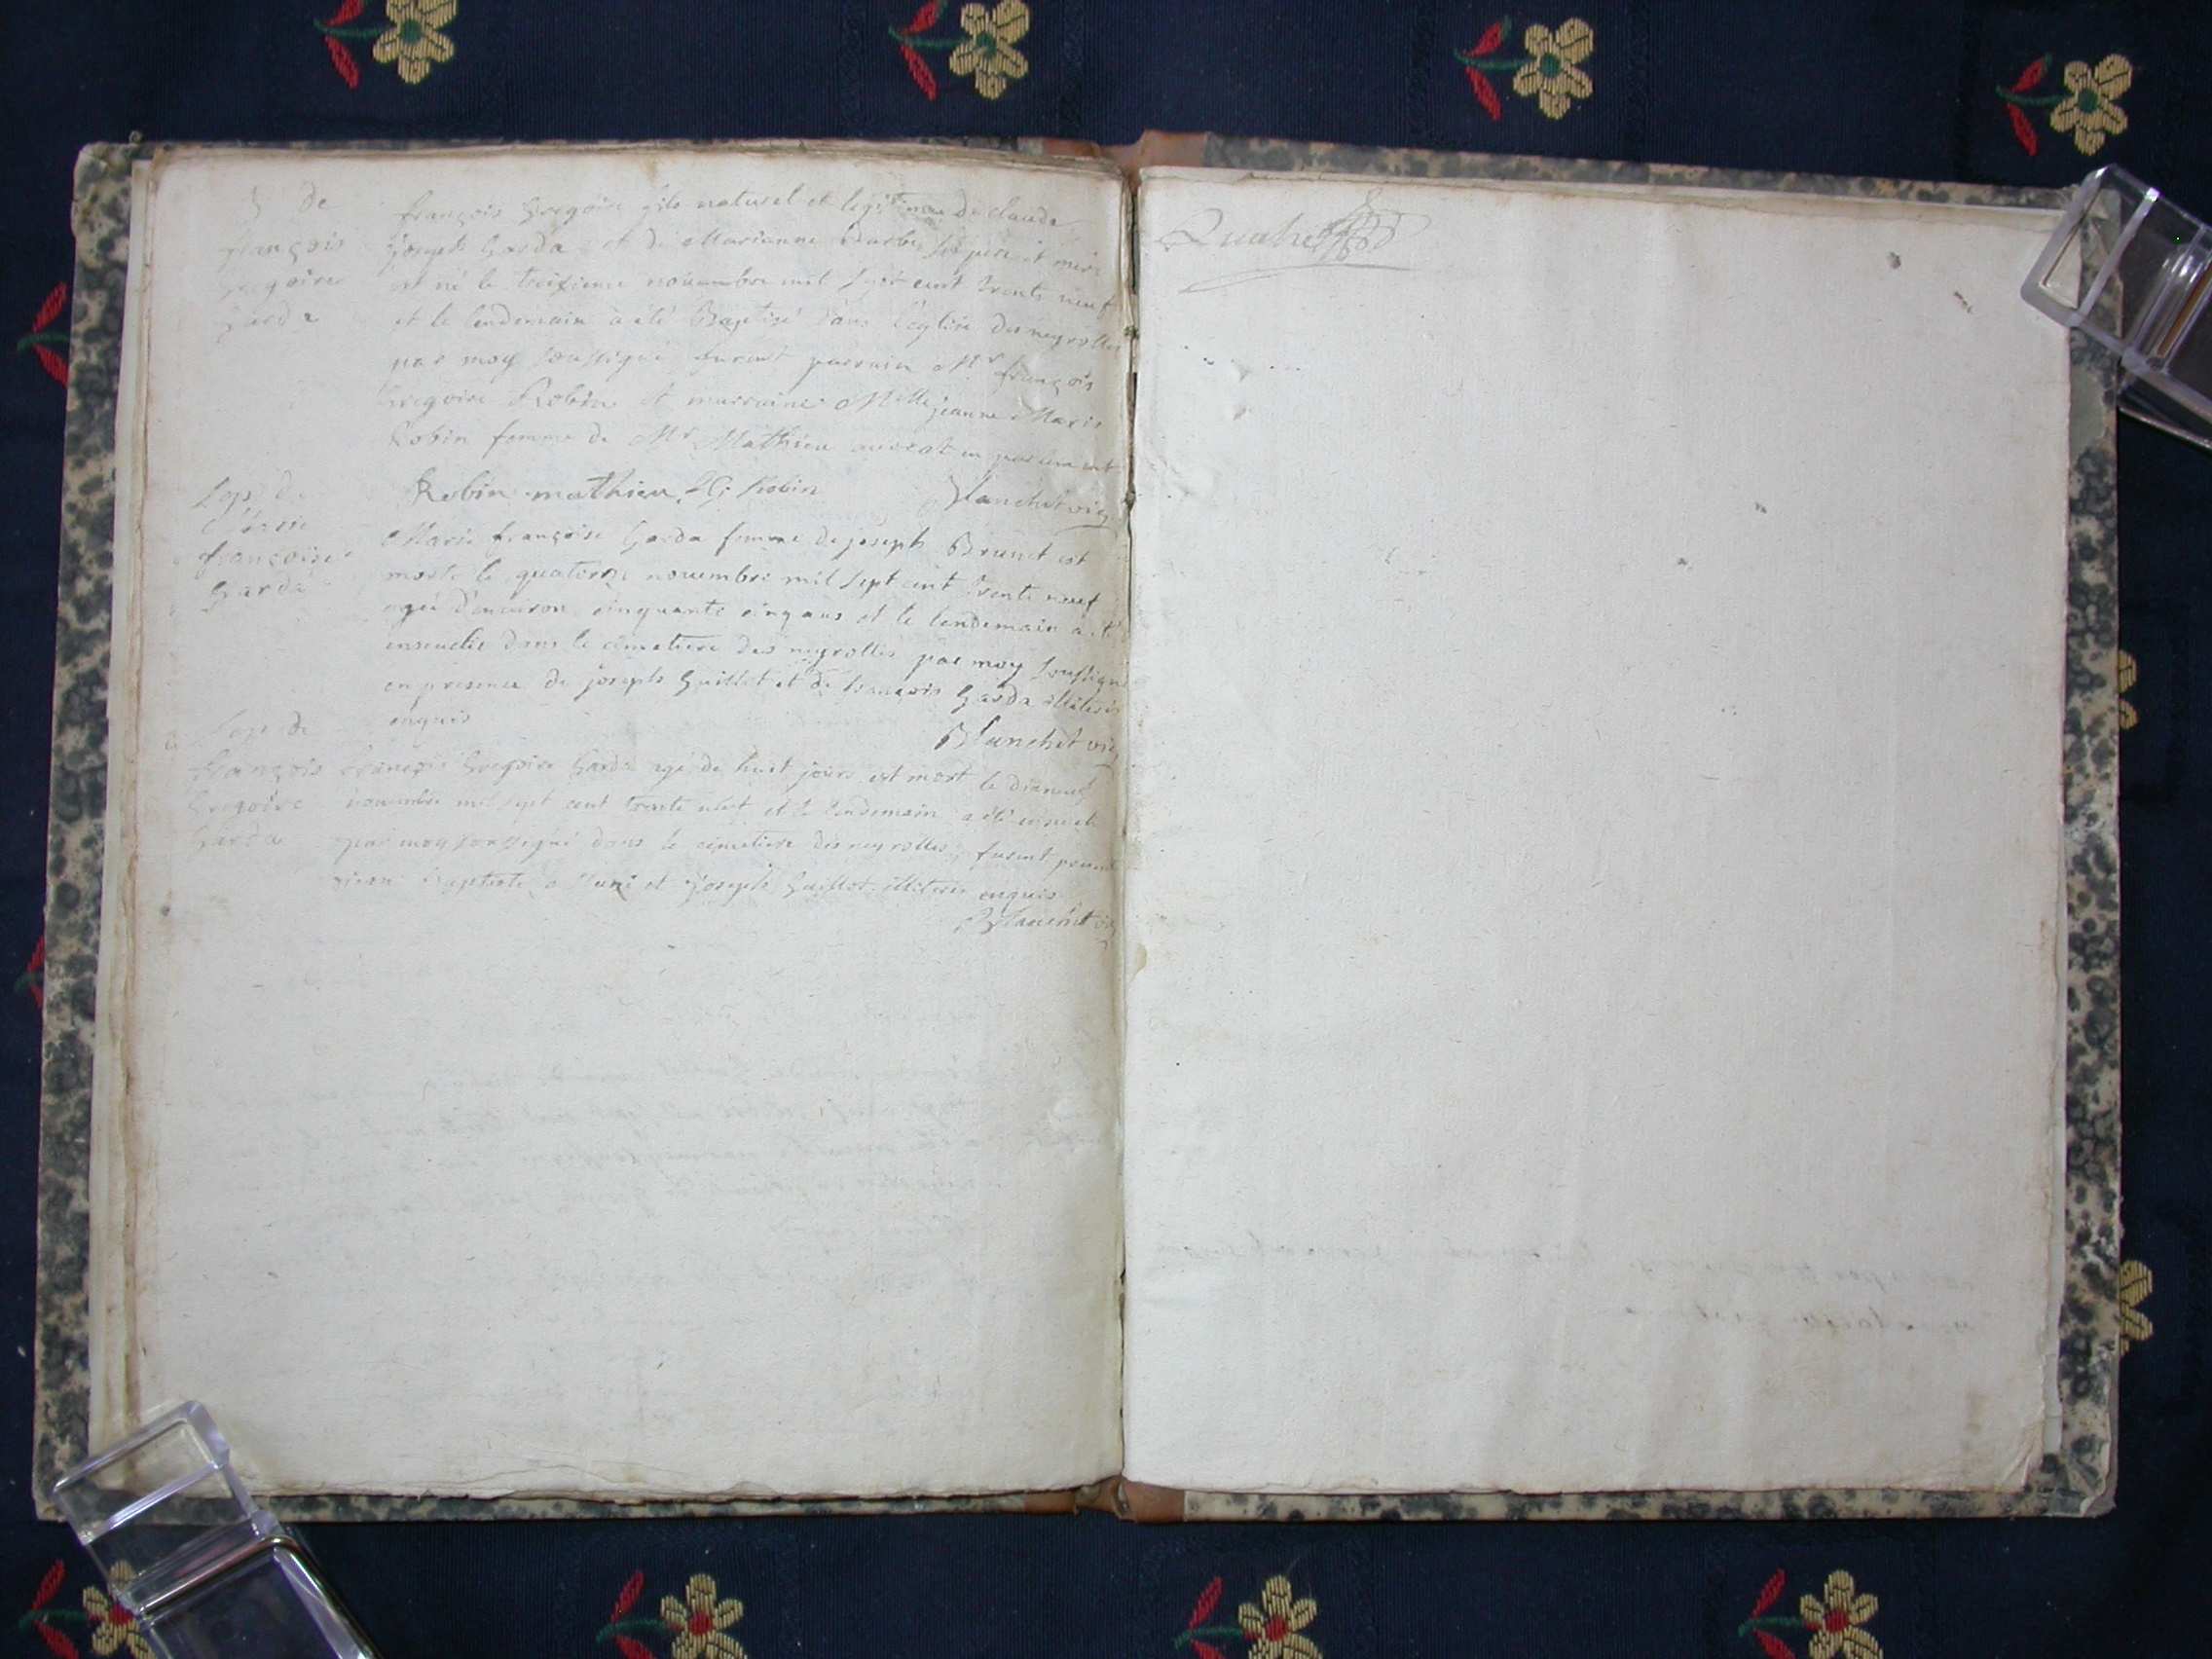 B de
françois
gregoire
Garda
françois Gregoire fils naturel et legitime de claude
joseph Garda et de Marianne ses pere et mere
est né le treizieme novembre mil sept cent trente neuf
et le lendemain a été Baptisé dans l'église des neyrolles
par moy soussigné furent parrain Mr françois
Gregoire Robin et marraine Mlle jeanne Marie
Robin femme de Mr Mathieu avocat en parlement
Robin mathieu f G Robin Blanchet vic
Sep de
Marie
françoise
Garda
Marie françoise Garda femme de joseph Brunet est
morte le quatorze novembre mil sept cent trente neuf
agée d'environ cinquante cinq ans et le lendemain a été
ensevelie dans le cimetiere des neyrolles par moy soussigné
en presence de joseph Guillot et de françois Garda illiterés
enquis
Blanchet vic
Sep de
françois
Gregoire
Garda
françois Gregoire Garda agé de huit jours est mort le dixneuf
novembre mil sept cent trente neuf et le lendemain a été enseveli
par moy soussigné dans le cimetiere des neyrolles furent presents
et joseph Guillot illiterés enquis
Blanchet vic
Quatre